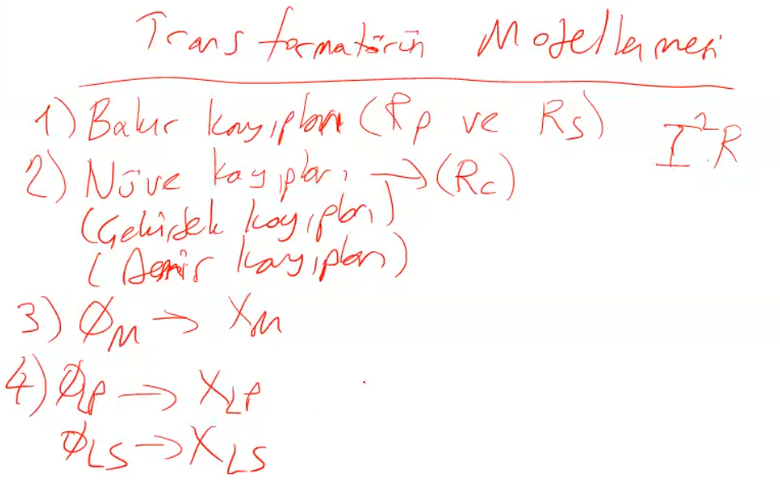 Transformatörün Modellemesi
1) Bakır kayıpları (Rp ve Rs) I².R
2) Nüve kayıpları → (Rc)
(Çekirdek kayıpları)
(Demir kayıpları)
3) ØM → XM
4) ØLP → XLP
ØLS → XLS